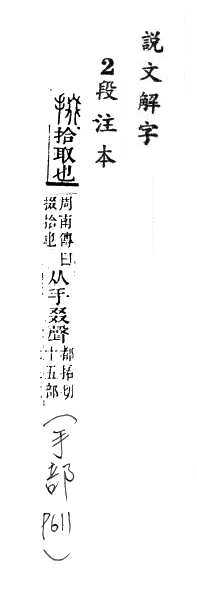 說文解字
2段注本
掇拾取也
周南傳曰
掇拾也
从手叕聲
都括切
十五部
(手部
P611)